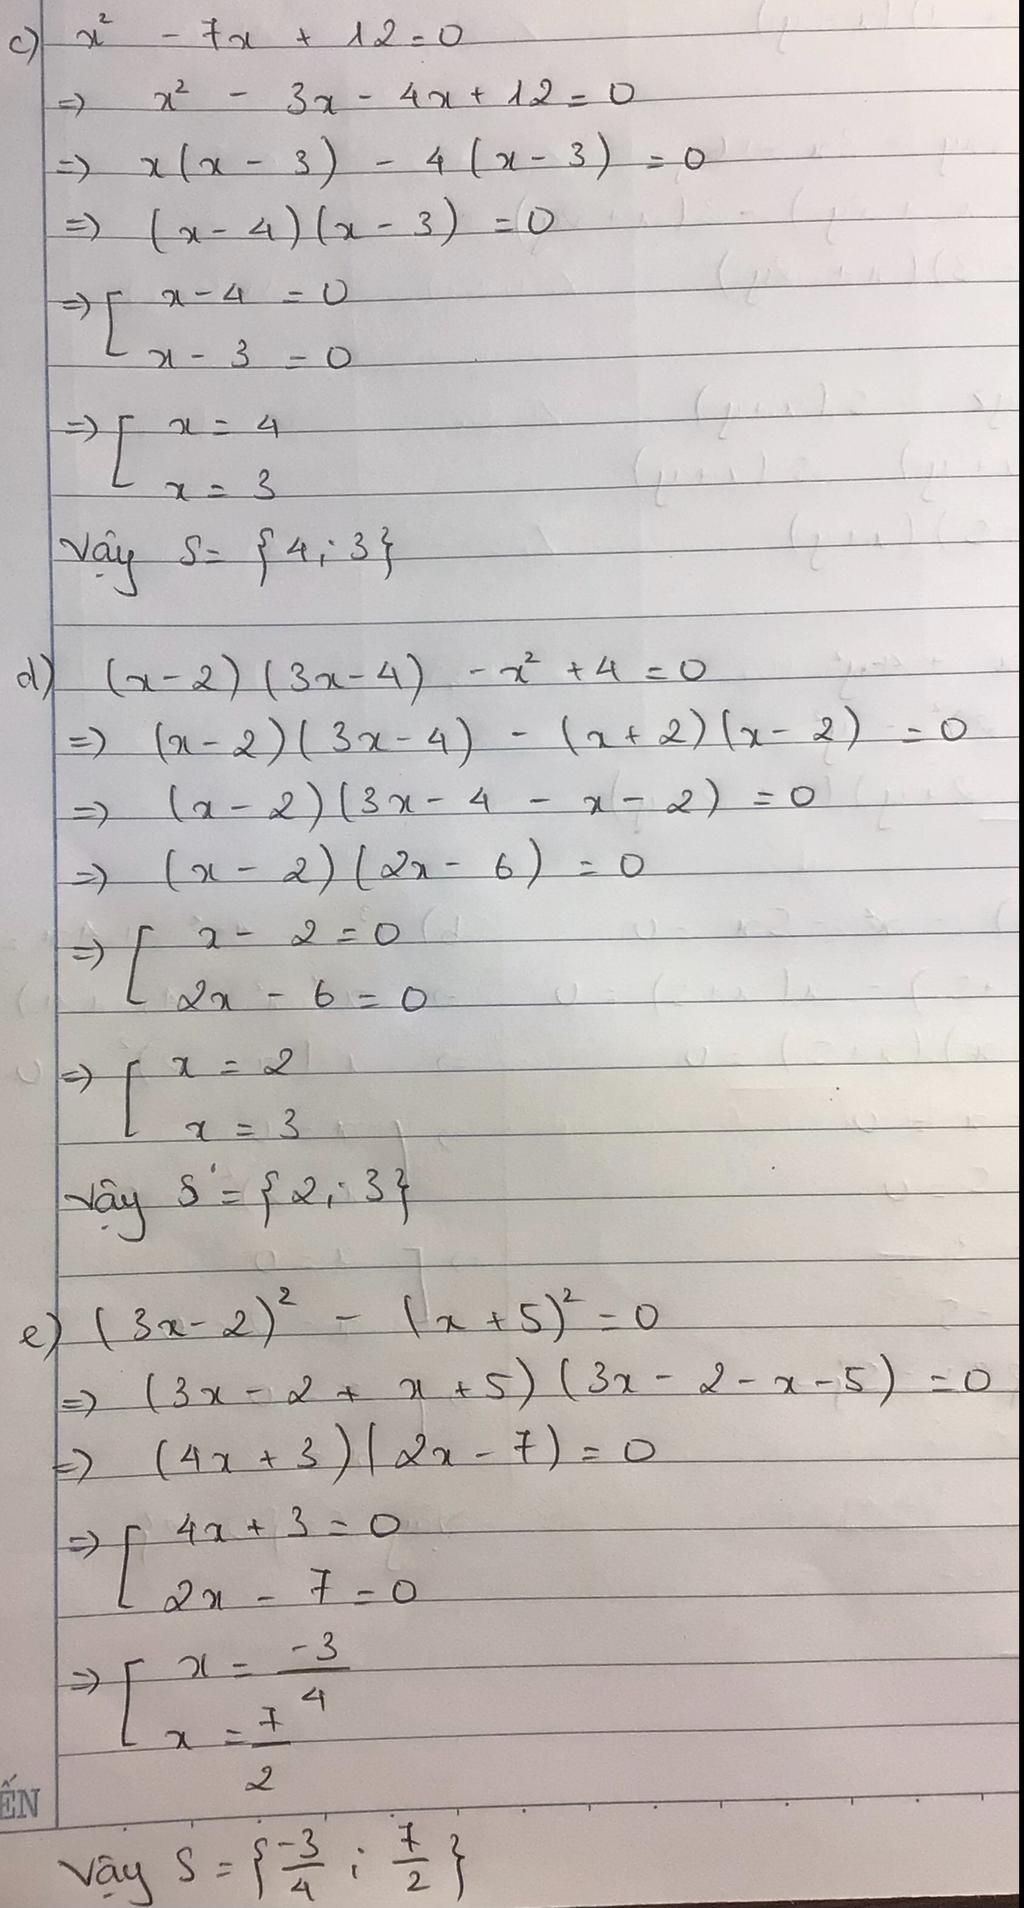 c) x² - 7x + 12 = 0
=> x² - 3x - 4x + 12 = 0
=> x(x - 3) - 4(x - 3) = 0
=> (x - 4)(x - 3) = 0
=> [ x - 4 = 0
x - 3 = 0
=> [ x = 4
x = 3
Vậy S = {4; 3}
d) (x - 2)(3x - 4) - x² + 4 = 0
=> (x - 2)(3x - 4) - (x + 2)(x - 2) = 0
=> (x - 2)(3x - 4 - x - 2) = 0
=> (x - 2)(2x - 6) = 0
=> [ x - 2 = 0
2x - 6 = 0
=> [ x = 2
x = 3
Vậy S = {2; 3}
e) (3x - 2)² - (x + 5)² = 0
=> (3x - 2 + x + 5)(3x - 2 - x - 5) = 0
=> (4x + 3)(2x - 7) = 0
=> [ 4x + 3 = 0
2x - 7 = 0
=> [ x = -3/4
x = 7/2
ẾN
Vậy S = {-3/4; 7/2}